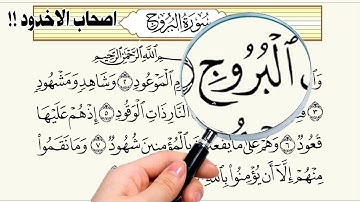 اصحاب الاخدود !!
سُورَةُ الْبُرُوجِ
بِسْمِ ٱللَّهِ ٱلرَّحْمَٰنِ ٱلرَّحِيمِ
ٱلْبُرُوجِ
ٱلْمَوْعُودِ ٢ وَشَاهِدٍ وَمَشْهُودٍ
ٱلنَّارِ ذَاتِ ٱلْوَقُودِ ٥ إِذْ هُمْ عَلَيْهَا
قُعُودٌ ٦ وَهُمْ عَلَىٰ مَا يَفْعَلُونَ بِٱلْمُؤْمِنِينَ شُهُودٌ ٧ وَمَا نَقَمُوا۟
مِنْهُمْ إِلَّآ أَن يُؤْمِنُوا۟ بِٱللَّهِ